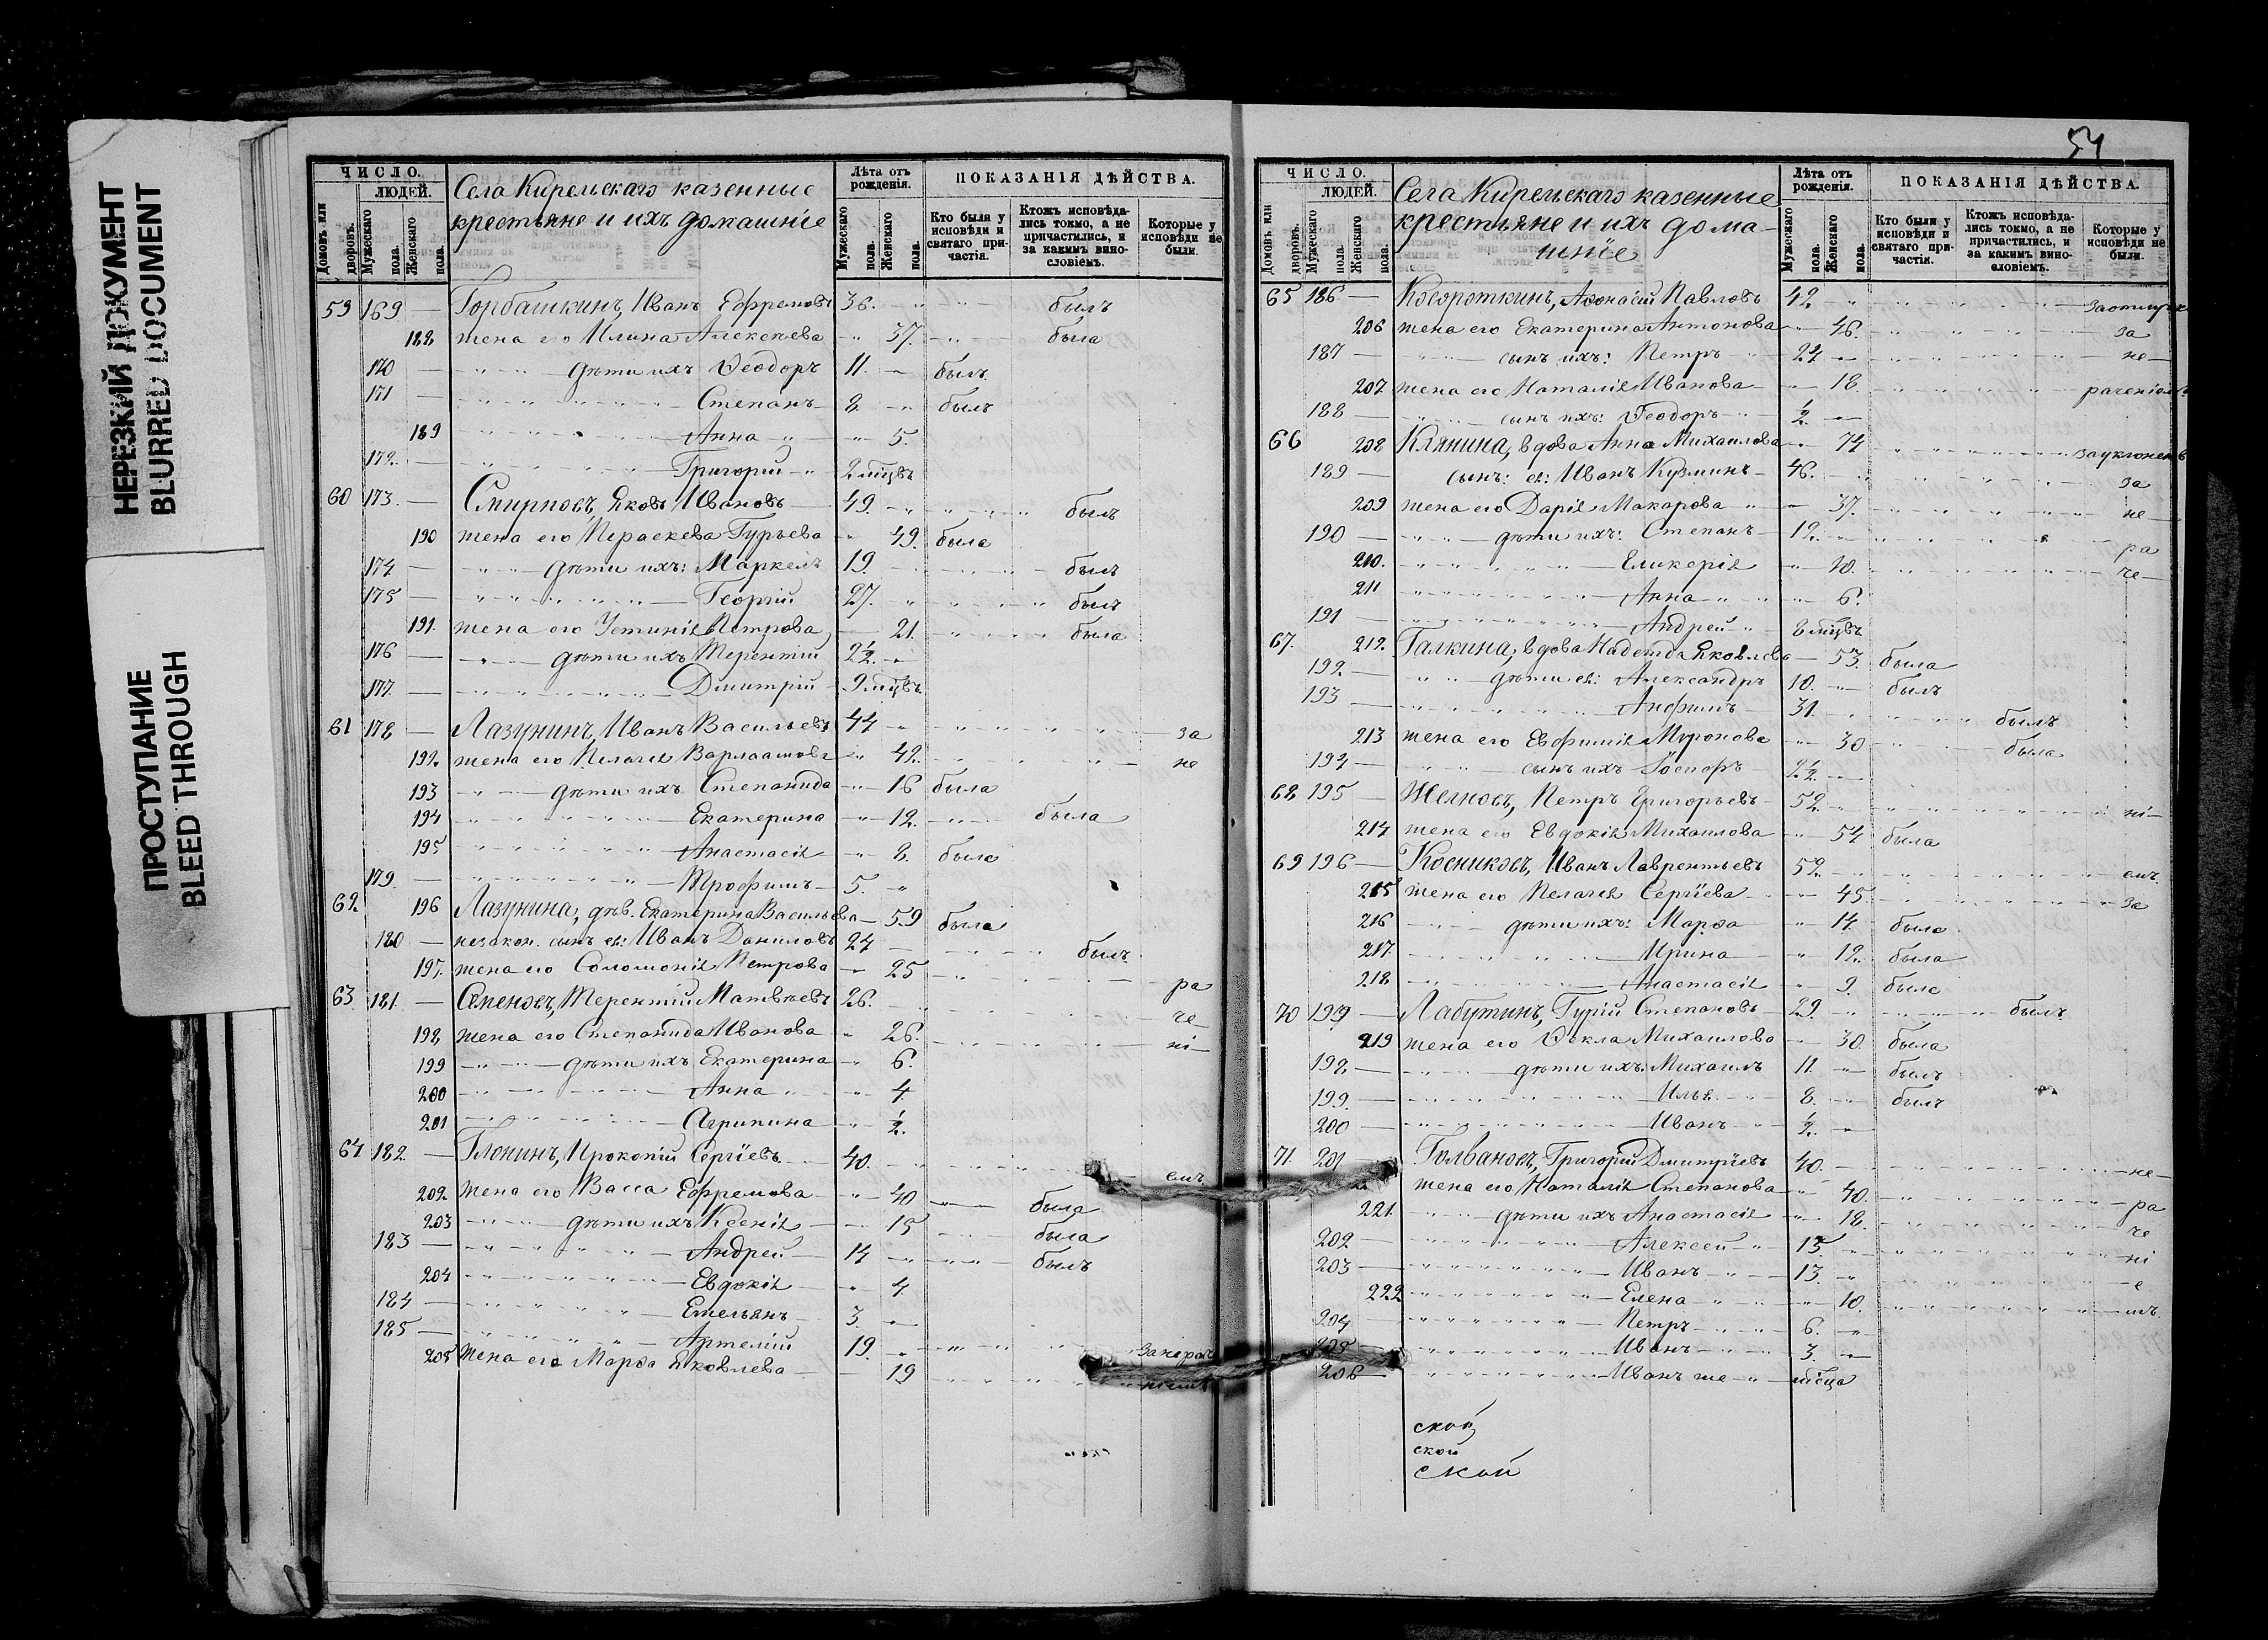 НЕРЕЗКИЙ ДОКУМЕНТ
BLURRED DOCUMENT
ПРОСТУПАНИЕ
BLEED THROUGH
ЧИСЛО.
ЛЮДЕЙ.
Домовъ или дворовъ.
Мужескаго пола.
Женскаго пола.
Села Кирельскаго казенные
крестьяне и ихъ домашніе
Лѣта отъ рожденія.
Мужескаго пола.
Женскаго пола.
ПОКАЗАНІЯ ДѢЙСТВА.
Кто были у исповѣди и святаго причастія.
Ктожъ исповѣдались токмо, а не причастились, и за какимъ винословіемъ.
Которые у исповѣди не были.
59 169 — Горбашкинъ, Иванъ Ефремовъ 36. былъ
188 жена его Алексѣева 37. была
170 — дѣти ихъ Ѳеодоръ 11. былъ
171 — Степанъ 8. былъ
189 Анна 5.
172. — Григорій 2 мѣцвъ
60 173 — Смирновъ, Яковъ Ивановъ 49. былъ
190 жена его Параскева Гурьева 49. была
174 — дѣти ихъ: Маркелъ 19. былъ
175 — Георгій 27. былъ
191. жена его Устинія Петрова 21. была
176 — дѣти ихъ Терентій 2½
177. — Дмитрій 9 мѣцвъ
61 178 — Лазунинъ, Иванъ Васильевъ 44 за
192. жена его Пелагея Варлаамова 42. не
193 дѣти ихъ Степанида 16 была
194 Екатерина 12. была
195 Анастасія 8. была
179. — Трофимъ 5.
62. 196 Лазунина, дѣв. Екатерина Васильева 59 была
180 — незакон. сынъ ея: Иванъ Даниловъ 24 былъ
197. жена его Соломонія Петрова 25 ра
63 181 — Семеновъ, Терентій Матвѣевъ 26. че
198 жена его Степанида Иванова 26. ні
199 дѣти ихъ Екатерина 6.
200 Анна 4
201 Агрипина ½.
64 182. — Глонинъ, Прокопій Сергіевъ 40. емъ
202. жена его Васса Ефремова 40 была
203 дѣти ихъ Ксенія 15 была
183 — Андрей 14 былъ
204 Евдокія 4
184 — Емельянъ 3.
185 — Артемій 19.
205 жена его Марѳа Яковлева 19
54
ЧИСЛО.
ЛЮДЕЙ.
Домовъ или дворовъ.
Мужескаго пола.
Женскаго пола.
Села Кирельскаго казенные
крестьяне и ихъ дома-
шніе
Лѣта отъ рожденія.
Мужескаго пола.
Женскаго пола.
ПОКАЗАНІЯ ДѢЙСТВА.
Кто были у исповѣди и святаго причастія.
Ктожъ исповѣдались токмо, а не причастились, и за какимъ винословіемъ.
Которые у исповѣди не были.
65 186 — Кособроткинъ, Аѳонасій Павловъ 42
206 жена его Екатерина Антонова 46. за
187 — сынъ ихъ: Петръ 22 не
207 жена его Наталія Иванова 18.
188 — сынъ ихъ: Ѳеодоръ ½
66 208 Клянина, вдова Анна Михаилова 74
189 — сынъ: ея: Иванъ Кузминъ 46. за
209 жена его Дарія Макарова 37. не
190 — дѣти ихъ: Степанъ 12. ра
210. Гликерія 10. че
211 Анна 6.
191 — Андрей 8 мѣцвъ
67. 212. Галкина, вдова Надежда Яковлева 53. была
192. — дѣти ея: Александръ 10. былъ
193 — Анфимъ 31. былъ
213 жена его Евфимія Миронова 30 была
194 — сынъ ихъ Іосифъ 2½
68 195 — Желновъ, Петръ Григорьевъ 52. ні
214 жена его Евдокія Михаилова 54 была
69 196 — Косниковъ, Иванъ Лаврентьевъ 52. емъ.
215 жена его Пелагея Сергіева 45. за
216 дѣти ихъ: Марѳа 14. была
217. Ирина 12. была
218 Анастасія 9. была
70 197 — Лабутинъ, Гурій Степановъ 29. былъ
219 жена его Ѳекла Михаилова 30. была
198. — дѣти ихъ: Михаилъ 11. былъ
199. — Илья 8. былъ
200 — Иванъ ½.
71. 201 — Голвановъ, Григорій Дмитріевъ 40. не
жена его Наталія Степанова 40. ра
221. дѣти ихъ Анастасія 18. че
202 — Алексей 15. ні
203 — Иванъ 13. е
222 Елена 10. мъ.
204 — Петръ 6.
205 — Иванъ 3.
206 — Иванъ же мѣсца
ской
ской
ской